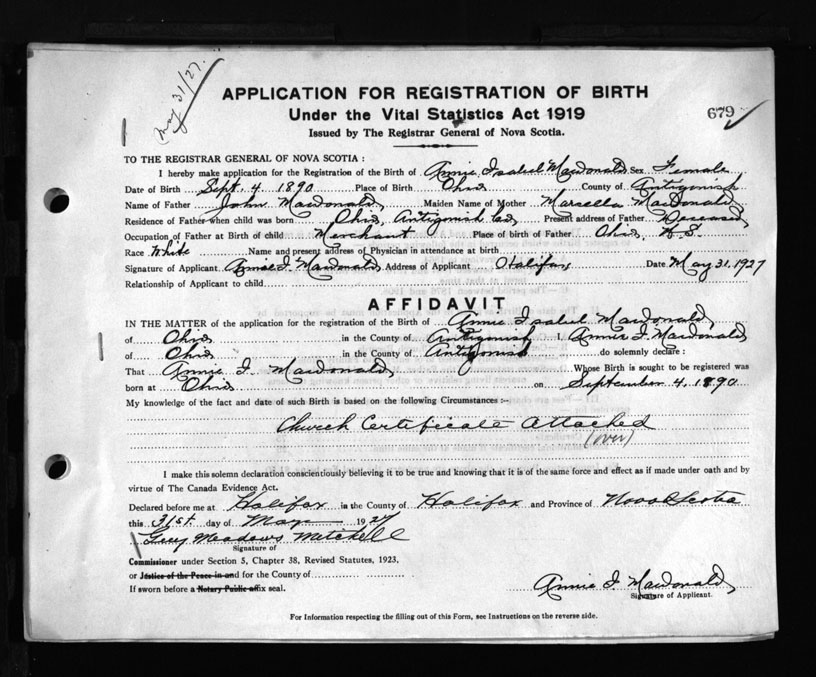 May 31/27.
APPLICATION FOR REGISTRATION OF BIRTH
Under the Vital Statistics Act 1919
679
Issued by The Registrar General of Nova Scotia.
TO THE REGISTRAR GENERAL OF NOVA SCOTIA :
I hereby make application for the Registration of the Birth of Annie Isabel Macdonald Sex Female
Date of Birth Sept. 4 1890 Place of Birth Ohio County of Antigonish
Name of Father John Macdonald Maiden Name of Mother Marsella MacDonald
Residence of Father when child was born Ohio, Antigonish Co. Present address of Father Deceased
Occupation of Father at Birth of child Merchant Place of birth of Father Ohio, N.S.
Race White Name and present address of Physician in attendance at birth
Signature of Applicant Annie I. Macdonald Address of Applicant Halifax Date May 31. 1927
Relationship of Applicant to child
AFFIDAVIT
IN THE MATTER of the application for the registration of the Birth of Annie Isabel Macdonald
of Ohio in the County of Antigonish I, Annie I. Macdonald
of Ohio in the County of Antigonish do solemnly declare :
That Annie I. Macdonald Whose Birth is sought to be registered was
born at Ohio on September 4, 1890
My knowledge of the fact and date of such Birth is based on the following Circumstances :-
Church Certificate Attached
(over)
I make this solemn declaration conscientiously believing it to be true and knowing that it is of the same force and effect as if made under oath and by
virtue of The Canada Evidence Act.
Declared before me at Halifax in the County of Halifax and Province of Nova Scotia
this 31st day of May 1927
Meadows Mitchell
Signature of
Commissioner under Section 5, Chapter 38, Revised Statutes, 1923,
or Justice of the Peace in and for the County of
If sworn before a Notary Public affix seal.
Annie I. Macdonald
Signature of Applicant.
For Information respecting the filling out of this Form, see Instructions on the reverse side.